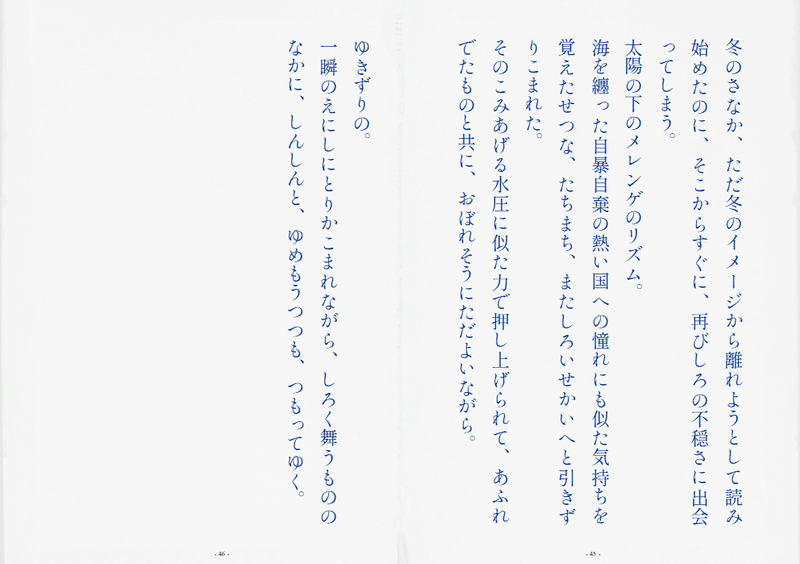 冬のさなか、ただ冬のイメージから離れようとして読み
始めたのに、そこからすぐに、再びしろの不穏さに出会
ってしまう。
太陽の下のメレンゲのリズム。
海を纏った自暴自棄の熱い国への憧れにも似た気持ちを
覚えたせつな、たちまち、またしろいせかいへと引きず
りこまれた。
そのこみあげる水圧に似た力で押し上げられて、あふれ
でたものと共に、おぼれそうにただよいながら。
- 45 -
ゆきずりの。
一瞬のえにしにとりかこまれながら、しろく舞うものの
なかに、しんしんと、ゆめもうつつも、つもってゆく。
- 46 -